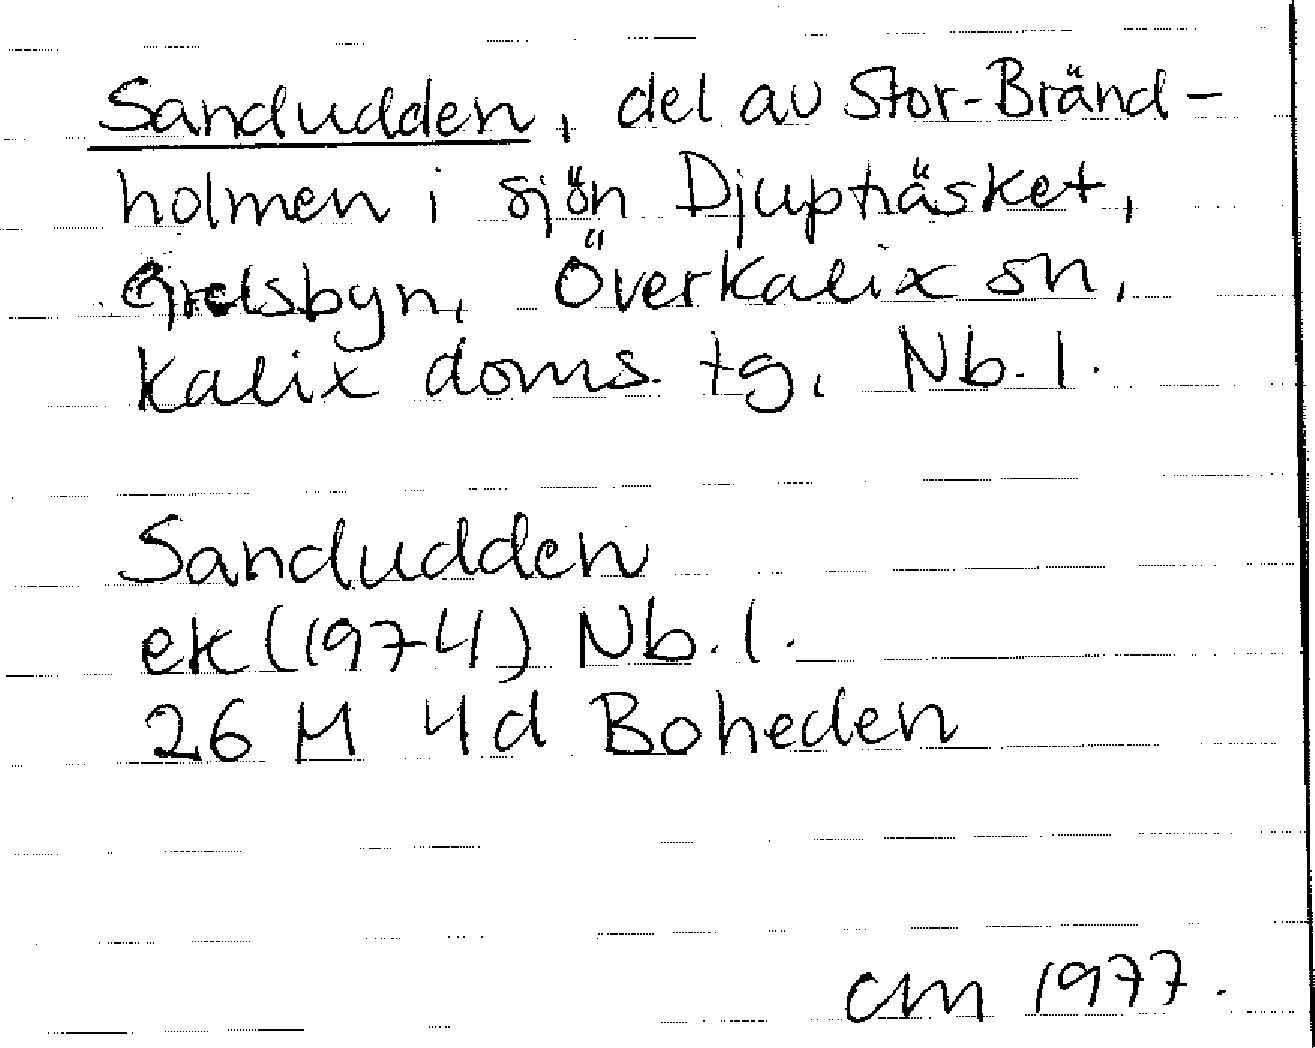 Sandudden, del av Stor-Bränd-
holmen i sjön Djupträsket,
Grelsbyn, Överkalix sn,
Kalix doms. tg. Nb. l.
Sandudden
ek (1974) Nb. l.
26 M 4d Boheden
cm 1977.